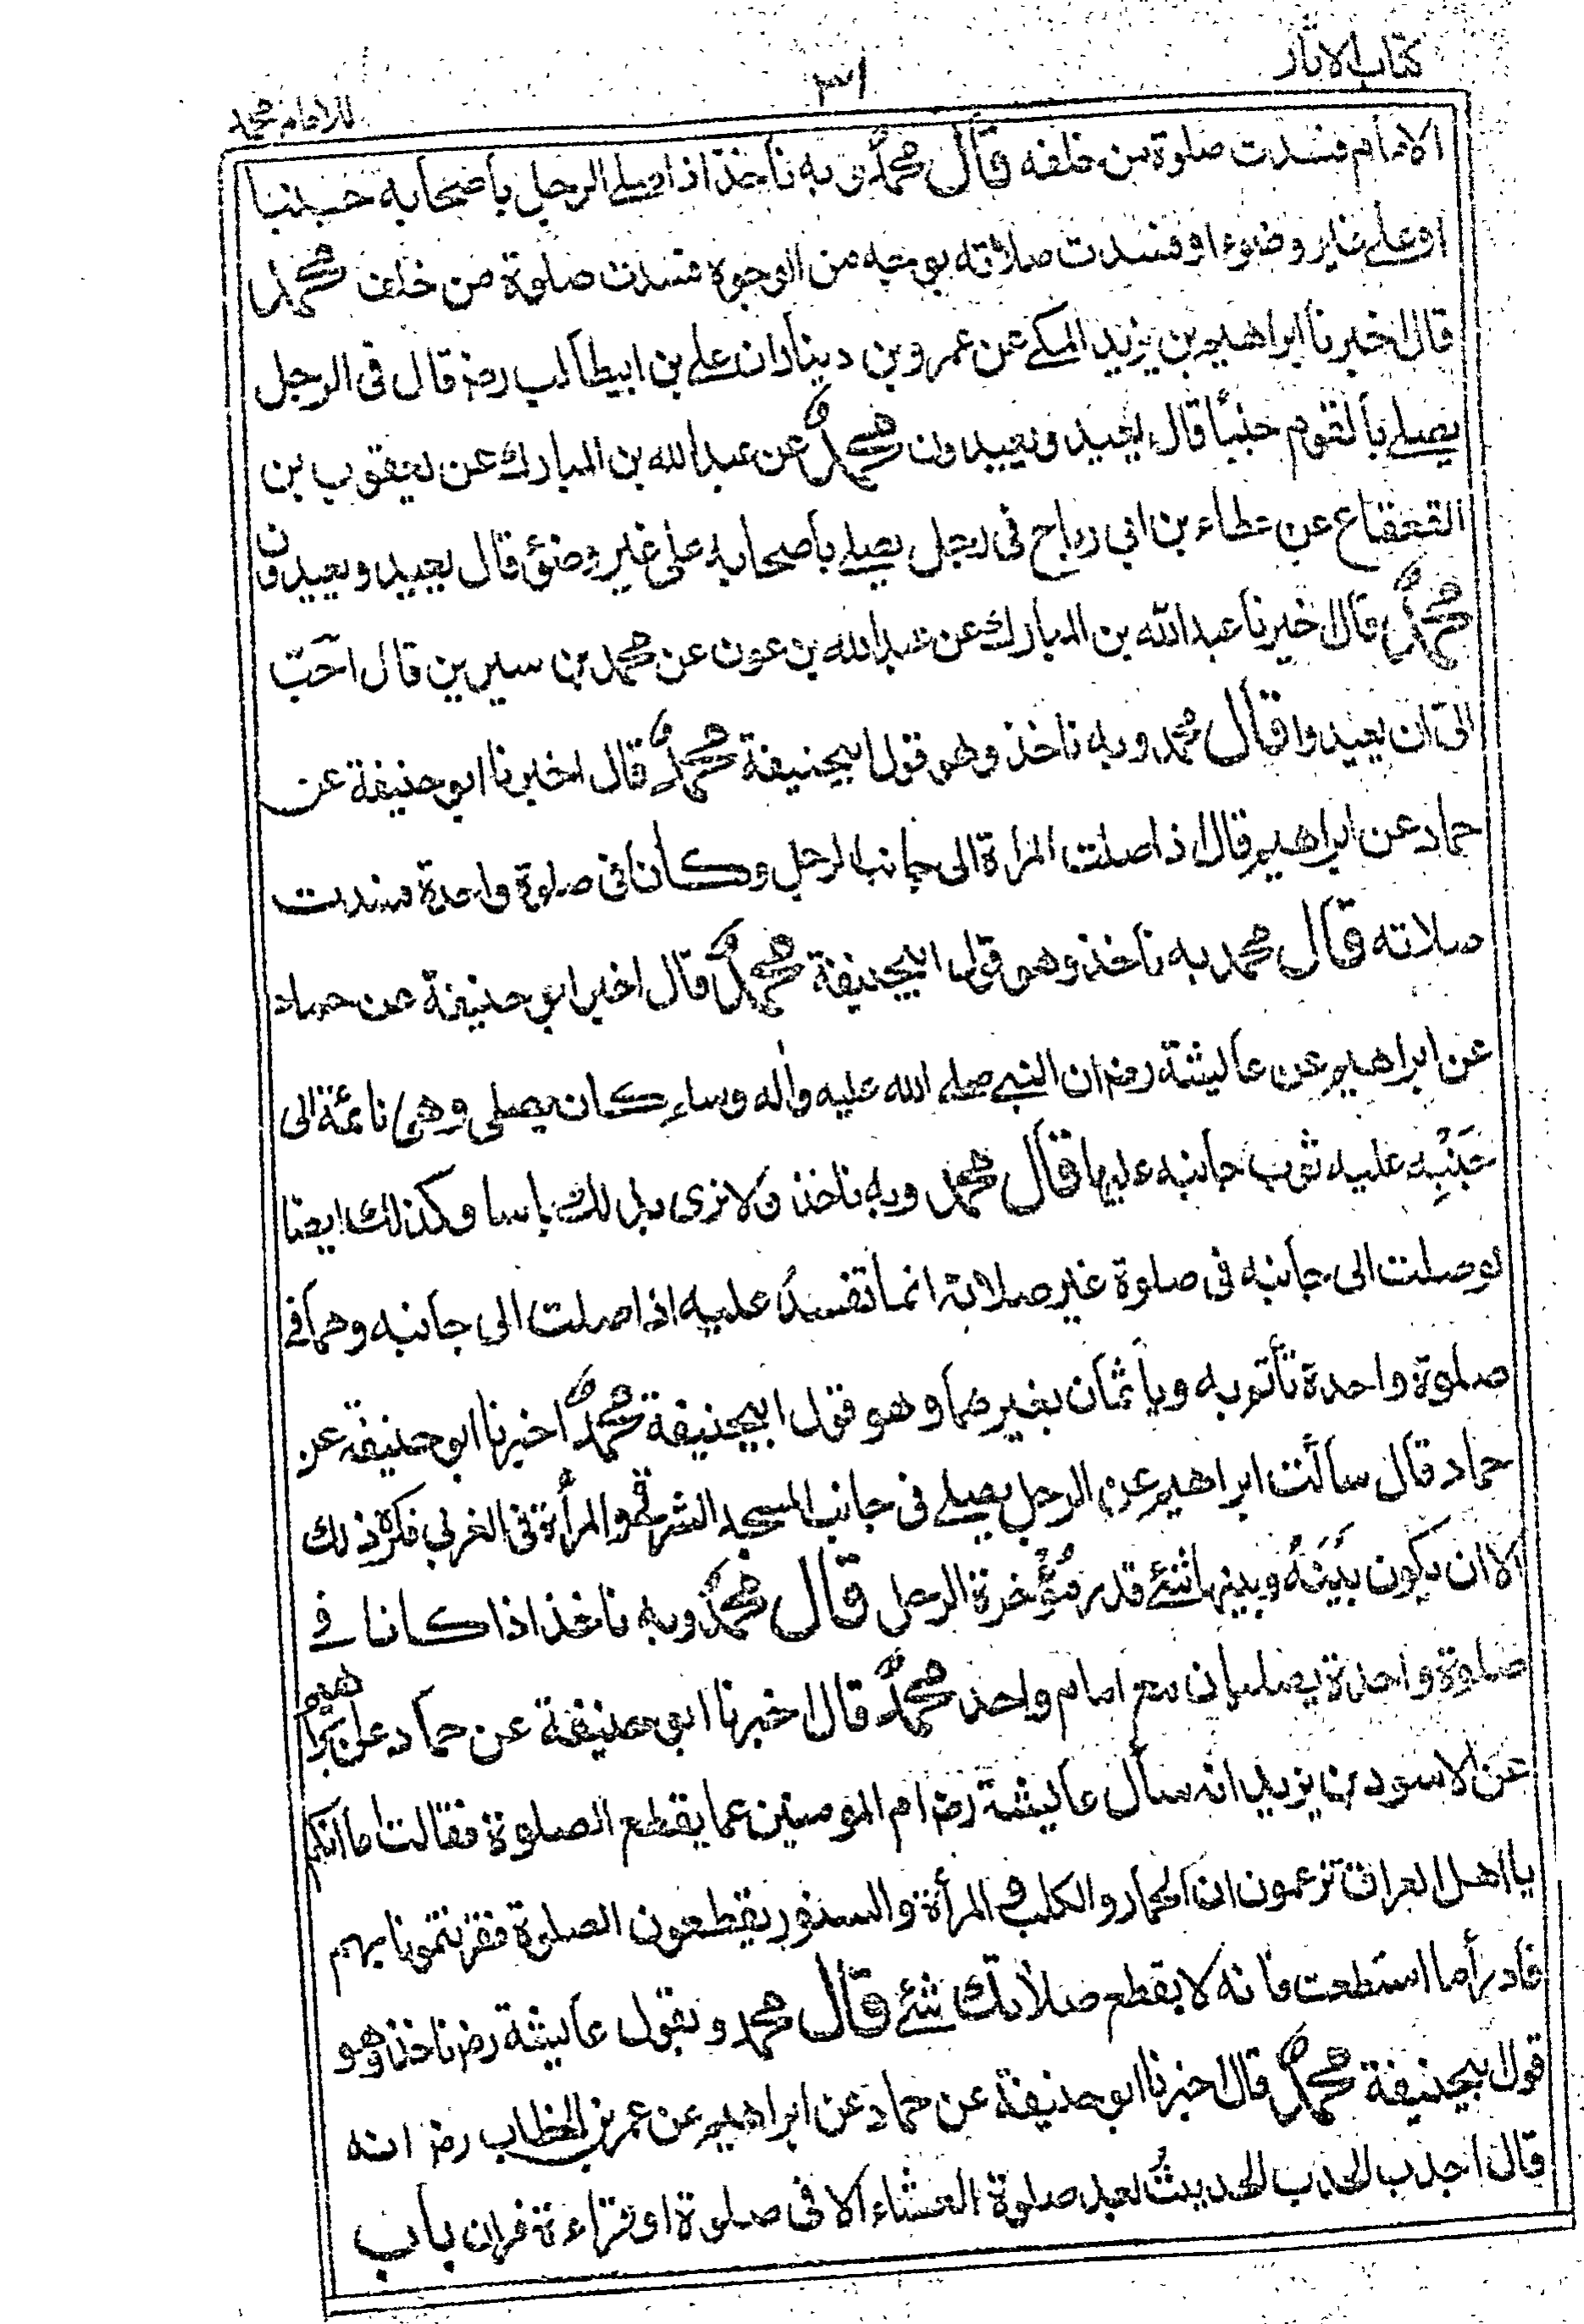 كتاب الاثار
٣١
للامام محمد
الامام فسدت صلوة من خلفه قال محمد وبه نأخذ اذا صلے الرجل بأصحابه جنبا
او علے غير وضوء او فسدت صلاته بوجه من الوجوه فسدت صلوة من خلف محمد
قال اخبرنا ابراهيم بن يزيد المكے عن عمرو بن دينار ان علے بن ابيطالب رضـ قال فى الرجل
يصلے بالقوم جنبًا قال يعيد ويعيدون محمد عن عبد الله بن المبارك عن يعقوب بن
القعقاع عن عطاء بن ابى رباح فى رجل يصلے بأصحابه على غير وضوء قال يعيد ويعيدون
محمد قال اخبرنا عبد الله بن المبارك عن عبد الله بن عون عن محمد بن سيرين قال احبّ
الىّ ان يعيدوا قال محمد وبه ناخذ وهو قول ابيحنيفة محمد قال اخبرنا ابو حنيفة عن
حماد عن ابراهيم قال اذا صلت المراة الى جانب الرجل وكانا فى صلوة واحدة فسدت
صلاته قال محمد به نأخذ وهو قول ابيحنيفة محمد قال اخبر ابو حنيفة عن حماد
عن ابراهيم عن عايشة رضـ ان النبے صلے الله عليه واله وسلم كان يصلى وهى نائمة الى
جَنْبِه عليه ثوب جانبه عليها قال محمد وبه ناخذ ولا نرى بذلك باسا وكذلك ايضا
لو صلت الى جانبه فى صلوة غير صلاته انما تفسد عليه اذا صلت الى جانبه وهما فے
صلوة واحدة تأتم به او يأتمان بغيرهما وهو قول ابيحنيفة محمد اخبرنا ابو حنيفة عن
حماد قال سألت ابراهيم عن الرجل يصلے فى جانب المسجد الشرقى والمرأة فى الغربى فكره ذلك
الا ان يكون بَيْنَهُ وبينها شئے قدر مُؤْخرة الرحل قال محمد وبه ناخذ اذا كانا فے
صلوة واحدة يصليان مع امام واحد محمد قال اخبرنا ابو حنيفة عن حماد عن ابراهيم
عن الاسود بن يزيد انه سأل عايشة رضـ ام المومنين عما يقطع الصلوة فقالت اما انكم
يا اهل العراق تزعمون ان الحمار والكلب والمرأة والسنور يقطعون الصلوة فقرنتمونا بهم
فادرأ ما استطعت فانه لا يقطع صلاتك شئے قال محمد وبقول عايشة رضـ ناخذ وهو
قول ابيحنيفة محمد قال اخبرنا ابو حنيفة عن حماد عن ابراهيم عن عمر بن الخطاب رضـ انه
قال اجدب الجدب الحديث بعد صلوة العشاء الا فى صلوة او قراءة قران باب